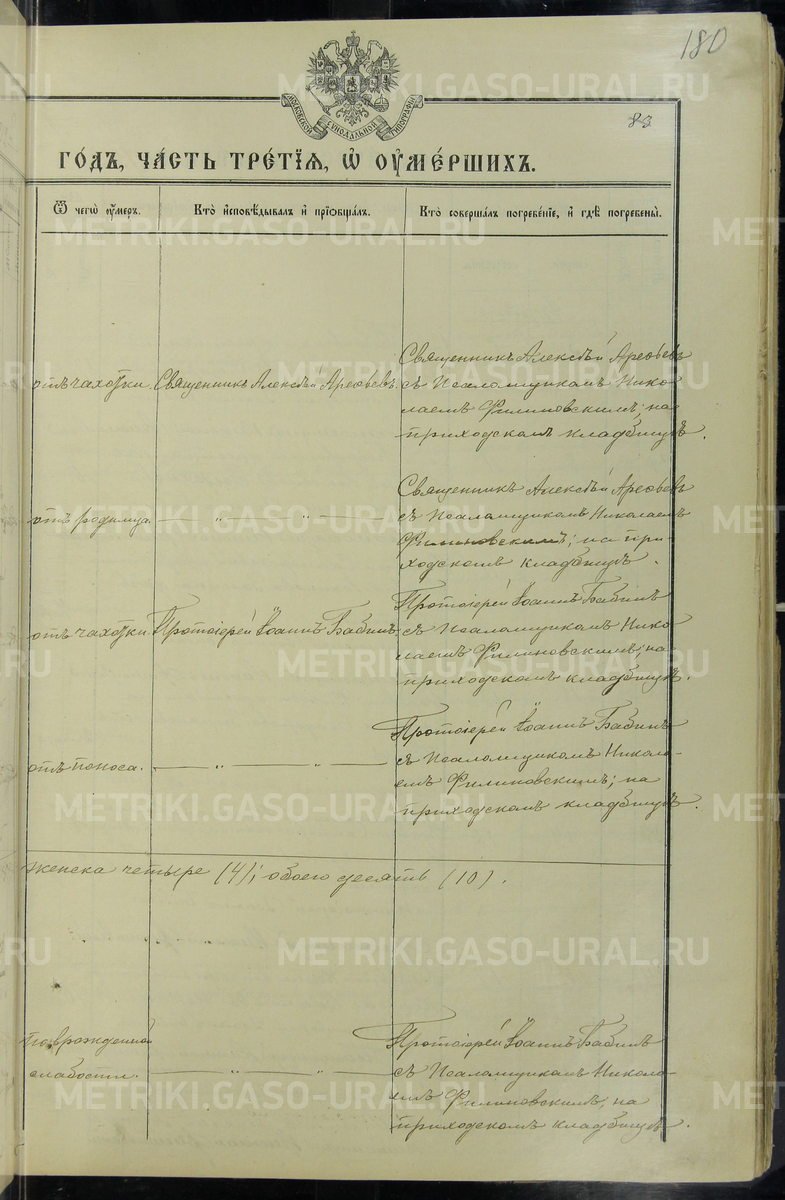 180
83
МОСКОВСКОЙ СѴНОДАЛЬНОЙ ТИПОГРАФІИ
ГО́ДЪ, ЧА́СТЬ ТРЕ́ТІѦ, Ѡ҆ ОУ҆МЕ́РШИХЪ.
Ѿ чегѡ̀ ᲂу҆́меръ.
Кто̀ и҆сповѣ́дывалъ и҆ прїѡбща́лъ.
Кто̀ соверша́лъ погребе́нїе, и҆ гдѣ̀ погребены̀.
отъ чахотки.
Священникъ Алексѣй Арефьевъ.
Священникъ Алексѣй Арефьевъ
съ Псаломщикомъ Нико-
лаемъ Филиновскимъ; на
приходскомъ кладбищѣ.
отъ родимца.
— „ — „ —
Священникъ Алексѣй Арефьевъ
съ Псаломщикомъ Николаемъ
Филиновскимъ; на при-
ходскомъ кладбищѣ.
отъ чахотки.
Протоіерей Іоаннъ Бабинъ
Протоіерей Іоаннъ Бабинъ
съ Псаломщикомъ Нико-
лаемъ Филиновскимъ; на
приходскомъ кладбищѣ.
отъ поноса.
— „ — „ —
Протоіерей Іоаннъ Бабинъ
съ Псаломщикомъ Никола-
емъ Филиновскимъ; на
приходскомъ кладбищѣ.
женска четыре (4); обоего десять (10).
По врожденной
слабости.
— „ — „ —
Протоіерей Іоаннъ Бабинъ
съ Псаломщикомъ Никола-
емъ Филиновскимъ, на
приходскомъ кладбищѣ.
METRIKI.GASO-URAL.RU